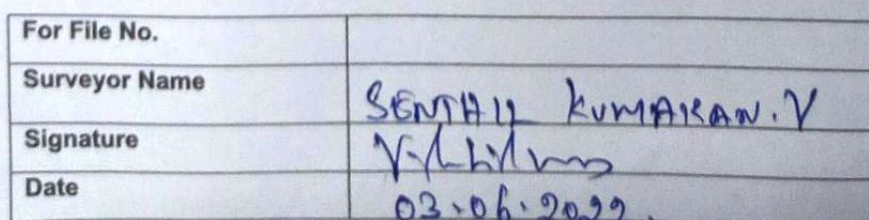 For File No.
Surveyor Name SENTHIL KUMARAN. V
Signature
Date 03.06.2022.